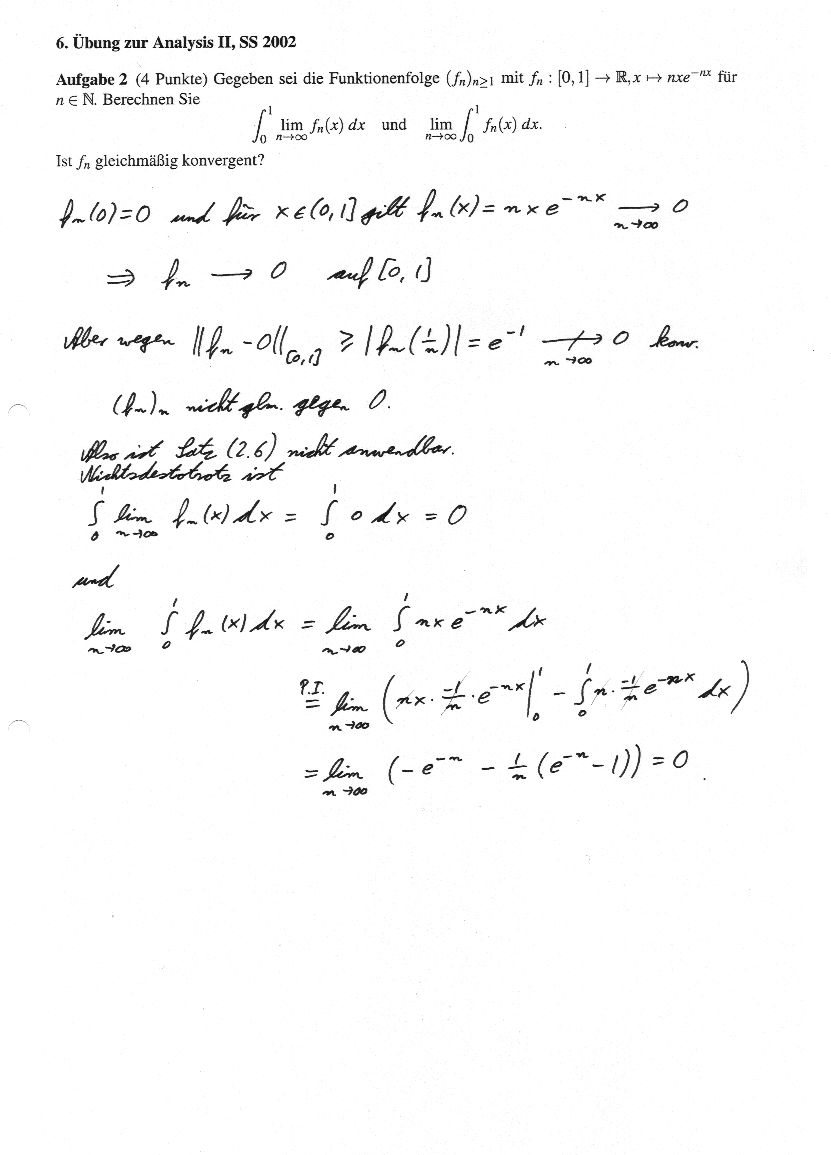 6. Übung zur Analysis II, SS 2002
Aufgabe 2 (4 Punkte) Gegeben sei die Funktionenfolge (fₙ)ₙ≥₁ mit fₙ : [0,1] → ℝ, x ↦ nxe⁻ⁿˣ für
n ∈ ℕ. Berechnen Sie
∫₀¹ lim_{n→∞} fₙ(x) dx und lim_{n→∞} ∫₀¹ fₙ(x) dx.
Ist fₙ gleichmäßig konvergent?
fₙ(0)=0 und für x∈(0,1] gilt fₙ(x) = nxe⁻ⁿˣ →_{n→∞} 0
⇒ fₙ → 0 auf [0,1]
Aber wegen ‖fₙ - 0‖_{[0,1]} ≥ |fₙ(1/n)| = e⁻¹ ↛_{n→∞} 0 konv.
(fₙ)ₙ nicht glm. gegen 0.
Also ist Satz (2.6) nicht anwendbar.
Nichtsdestotrotz ist
∫₀¹ lim_{n→∞} fₙ(x) dx = ∫₀¹ 0 dx = 0
und
lim_{n→∞} ∫₀¹ fₙ(x) dx = lim_{n→∞} ∫₀¹ nxe⁻ⁿˣ dx
P.I. = lim_{n→∞} (nx · -1/n · e⁻ⁿˣ |₀¹ - ∫₀¹ n · -1/n e⁻ⁿˣ dx)
= lim_{n→∞} (-e⁻ⁿ - 1/n (e⁻ⁿ - 1)) = 0.